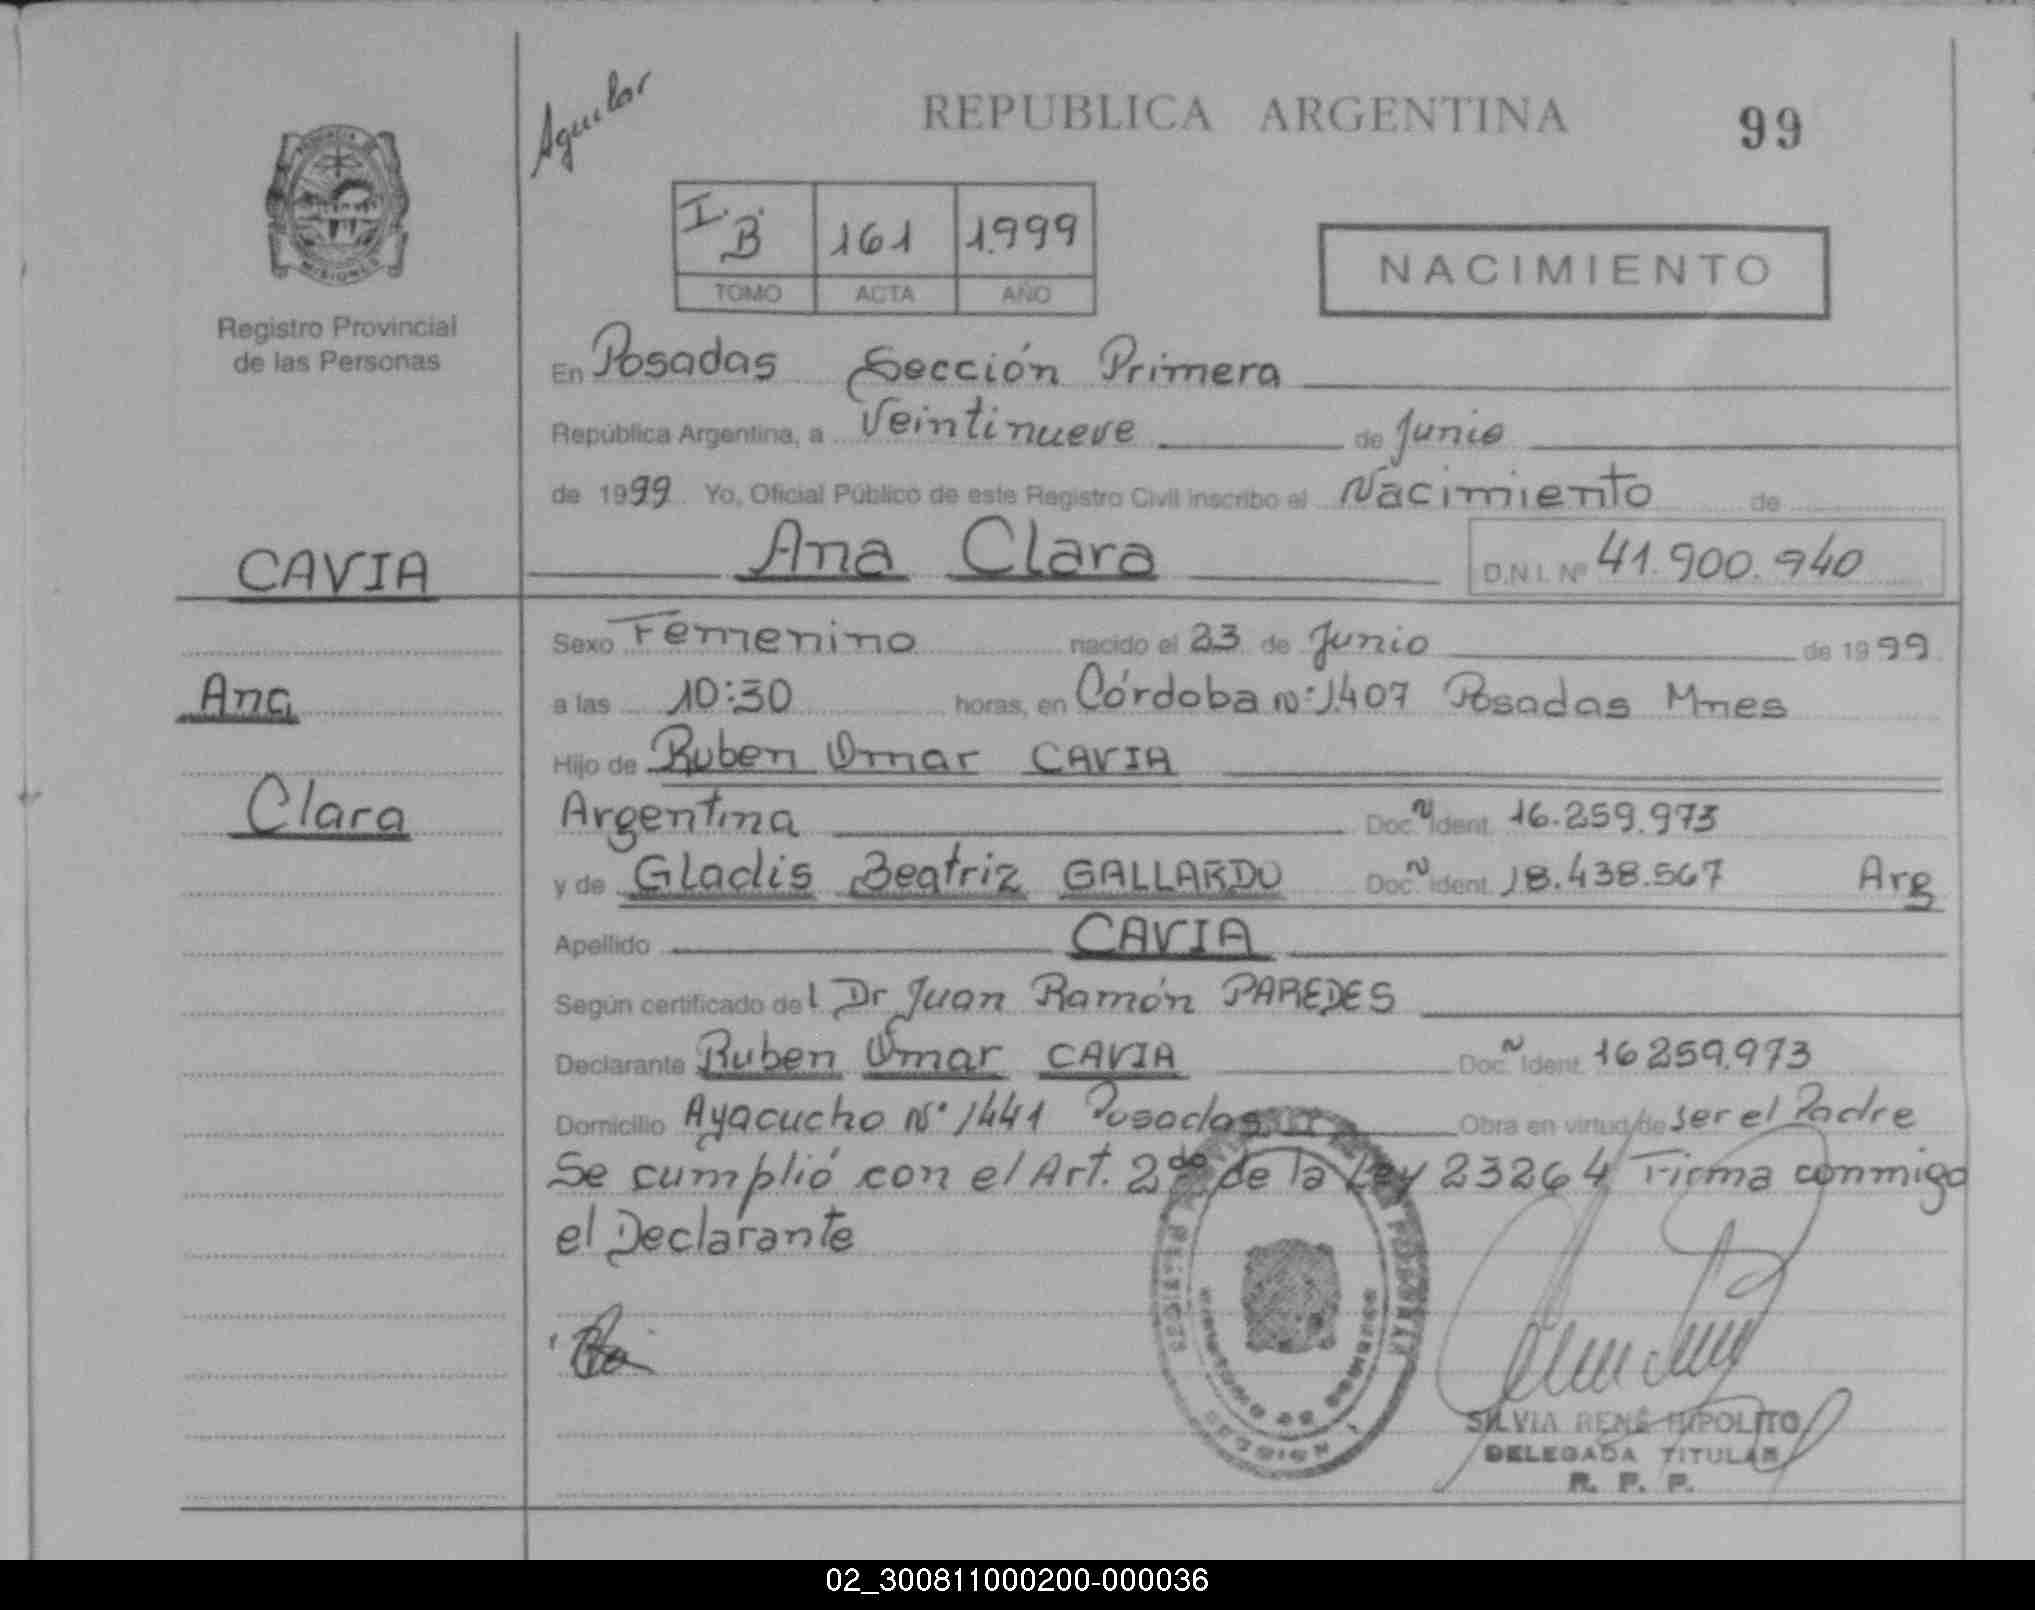 Aguilar
REPUBLICA ARGENTINA
99
I. B. 161 1.999
TOMO ACTA AÑO
NACIMIENTO
MISIONES
Registro Provincial
de las Personas
En Posadas Sección Primera
República Argentina, a Veintinueve de Junio
de 1999 Yo, Oficial Público de este Registro Civil inscribo el Nacimiento de
CAVIA
Ana Clara D.N.I. Nº 41.900.940
Sexo Femenino nacido el 23 de Junio de 1999
Ana
a las 10:30 horas, en Córdoba Nº 1.407 Posadas Mnes
Hijo de Ruben Omar CAVIA
Clara
Argentina Doc. N Ident. 16.259.973
y de Gladis Beatriz GALLARDO Doc. N Ident. 18.438.567 Arg
Apellido CAVIA
Según certificado del Dr Juan Ramón PAREDES
Declarante Ruben Omar CAVIA Doc. N Ident. 16259.973
Domicilio Ayacucho Nº 1441 Posadas Obra en virtud de ser el Padre
Se cumplió con el Art. 2do de la Ley 23264 Firma conmigo
el Declarante
SILVIA RENÉ HIPOLITO
DELEGADA TITULAR
R. P. P.
02_300811000200-000036